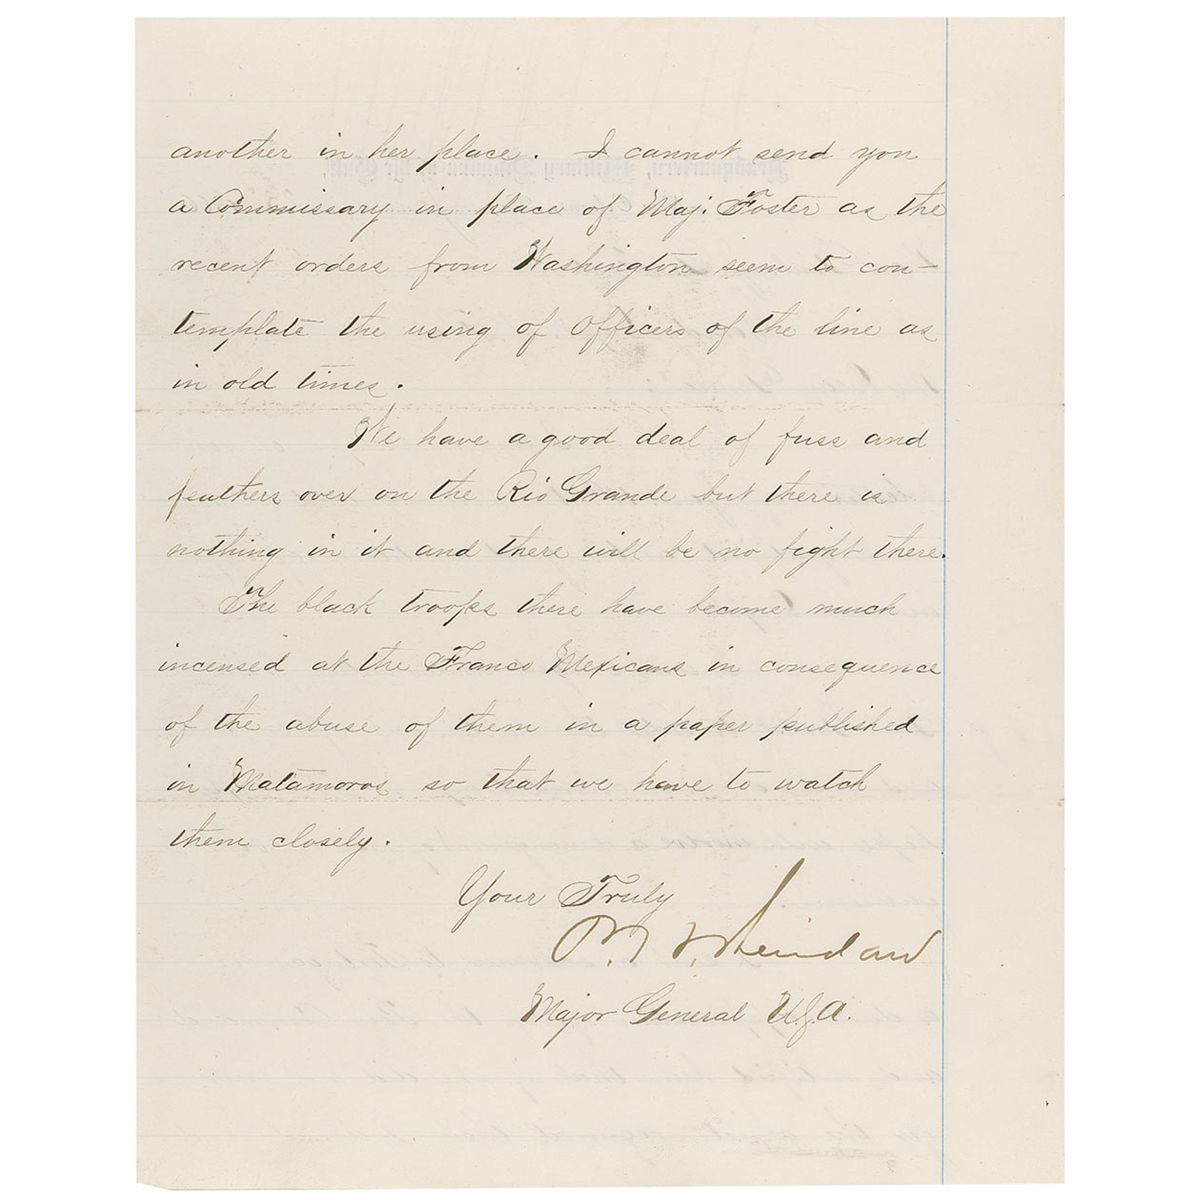 another in her place. I cannot send you
a Commissary in place of Maj. Foster as the
recent orders from Washington seem to con-
template the using of Officers of the line as
in old times.
We have a good deal of fuss and
feathers over on the Rio Grande but there is
nothing in it and there will be no fight there.
The black troops there have become much
incensed at the Franco Mexicans in consequence
of the abuse of them in a paper published
in Matamoros so that we have to watch
them closely.
Your Truly
P. H. Sheridan
Major General U.S.A.